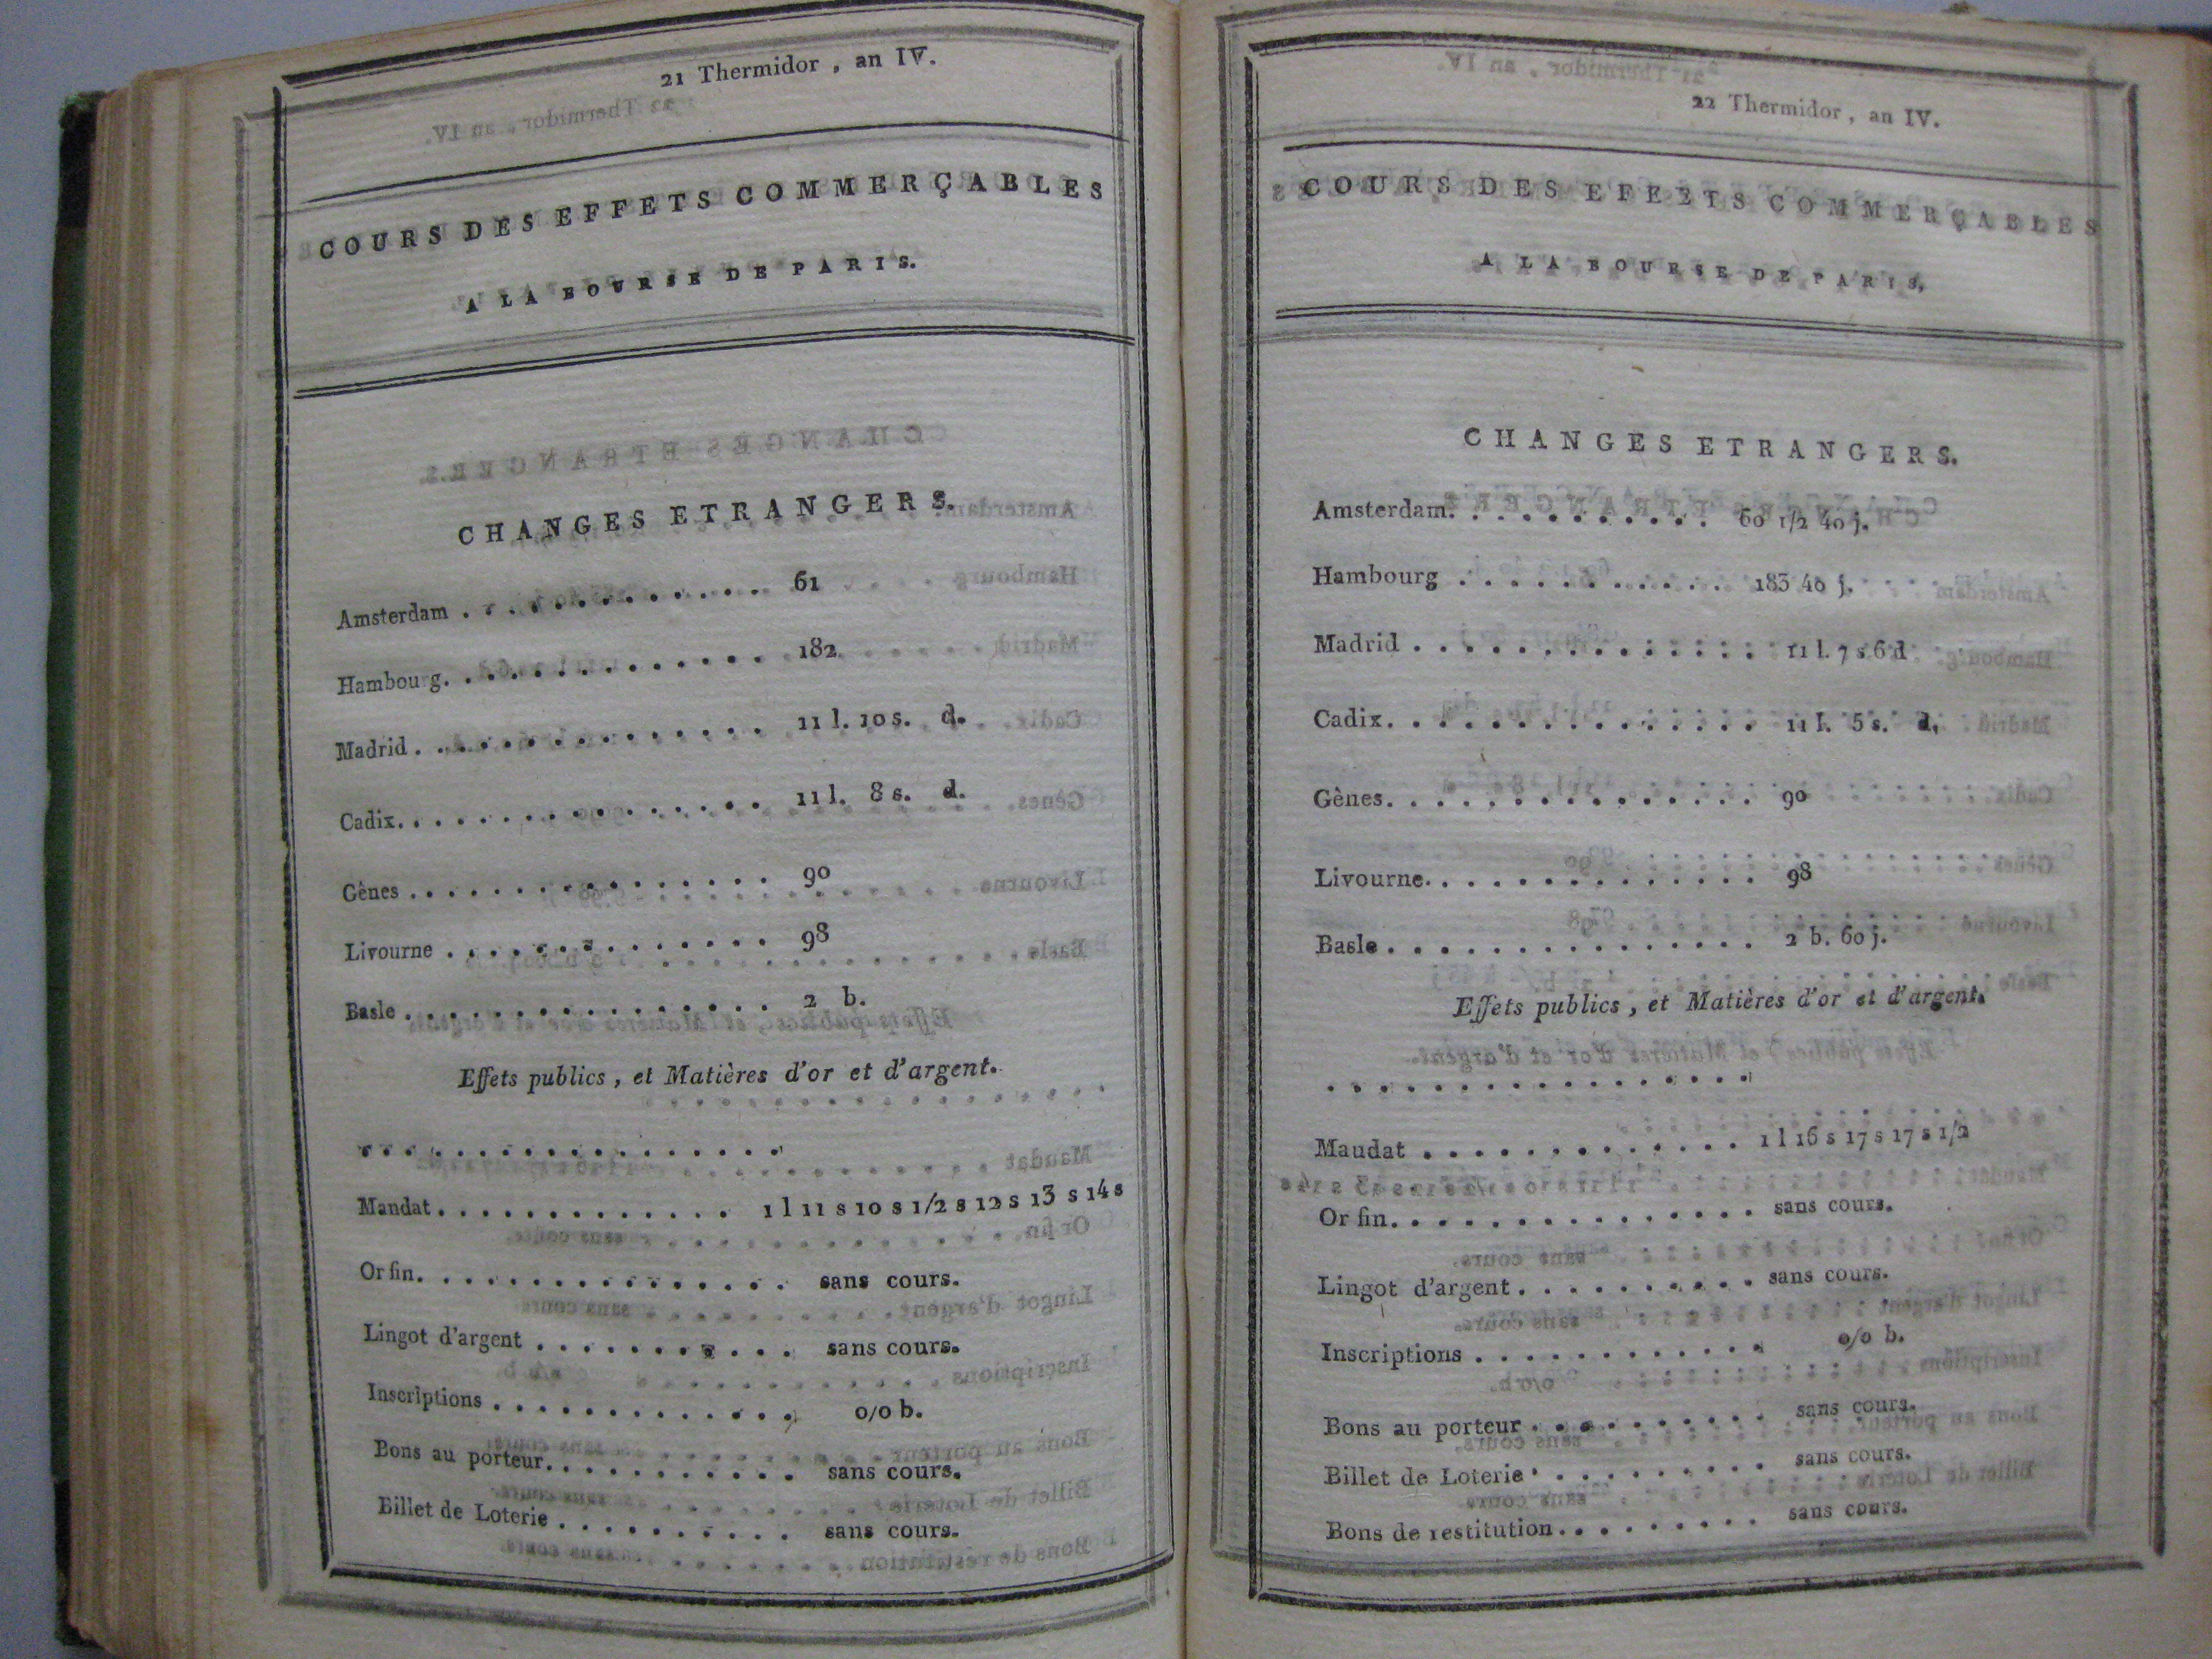 21 Thermidor , an IV.
COURS DES EFFETS COMMERÇABLES
A LA BOURSE DE PARIS.
CHANGES ETRANGERS.
Amsterdam . . . . . . . . . . . . . 61
Hambourg. . . . . . . . . . . . . 182
Madrid . . . . . . . . . . . . . . . 11 l. 10 s. d.
Cadix. . . . . . . . . . . . . . . . 11 l. 8 s. d.
Gênes . . . . . . . . . . . . . . . . 90
Livourne . . . . . . . . . . . . . . 98
Basle . . . . . . . . . . . . . . . . 2 b.
Effets publics , et Matières d'or et d'argent.
. . . . . . . . . . . . . . . . . .
Mandat. . . . . . . . . . . . . 1 l 11 s 10 s 1/2 s 12 s 13 s 14 s
Or fin. . . . . . . . . . . . . . . . sans cours.
Lingot d'argent . . . . . . . . . . . sans cours.
Inscriptions . . . . . . . . . . . . . 0/0 b.
Bons au porteur. . . . . . . . . . . sans cours.
Billet de Loterie . . . . . . . . . . sans cours.
22 Thermidor , an IV.
COURS DES EFEETS COMMERÇABLES
A LA BOURSE DE PARIS.
CHANGES ETRANGERS.
Amsterdam. . . . . . . . . . . 60 1/2 40 j.
Hambourg . . . . . . . . . . . 183 40 j.
Madrid . . . . . . . . . . . . . . 11 l. 7 s 6 d
Cadix. . . . . . . . . . . . . . . 11 l. 5 s. d.
Gènes. . . . . . . . . . . . . . . 90
Livourne. . . . . . . . . . . . . . 98
Basle . . . . . . . . . . . . . . . 2 b. 60 j.
Effets publics , et Matières d'or et d'argent.
. . . . . . . . . . . . . . . . . .
Maudat . . . . . . . . . . . . . 1 l 16 s 17 s 17 s 1/2
Or fin. . . . . . . . . . . . . . . sans cours.
Lingot d'argent . . . . . . . . . . sans cours.
Inscriptions . . . . . . . . . . . . 0/0 b.
Bons au porteur . . . . . . . . . . sans cours.
Billet de Loterie . . . . . . . . . sans cours.
Bons de restitution. . . . . . . . . sans cours.